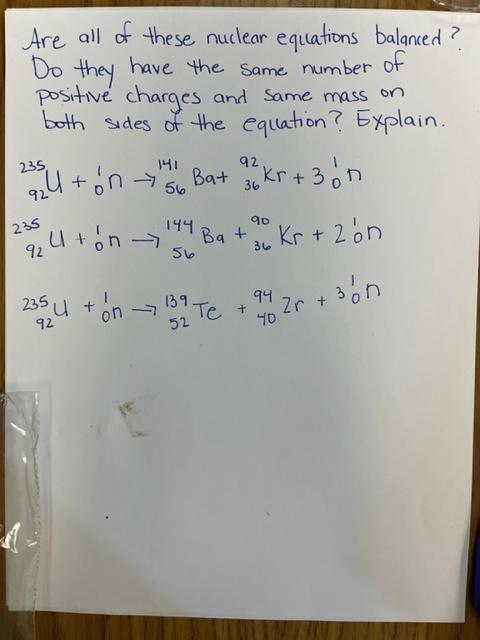 Are all of these nuclear equations balanced?
Do they have the same number of
positive charges and same mass on
both sides of the equation? Explain.
²³⁵₉₂U + ¹₀n → ¹⁴¹₅₆Ba + ⁹²₃₆Kr + 3 ¹₀n
²³⁵₉₂U + ¹₀n → ¹⁴⁴₅₆Ba + ⁹⁰₃₆Kr + 2 ¹₀n
²³⁵₉₂U + ¹₀n → ¹³⁹₅₂Te + ⁹⁴₄₀Zr + 3 ¹₀n